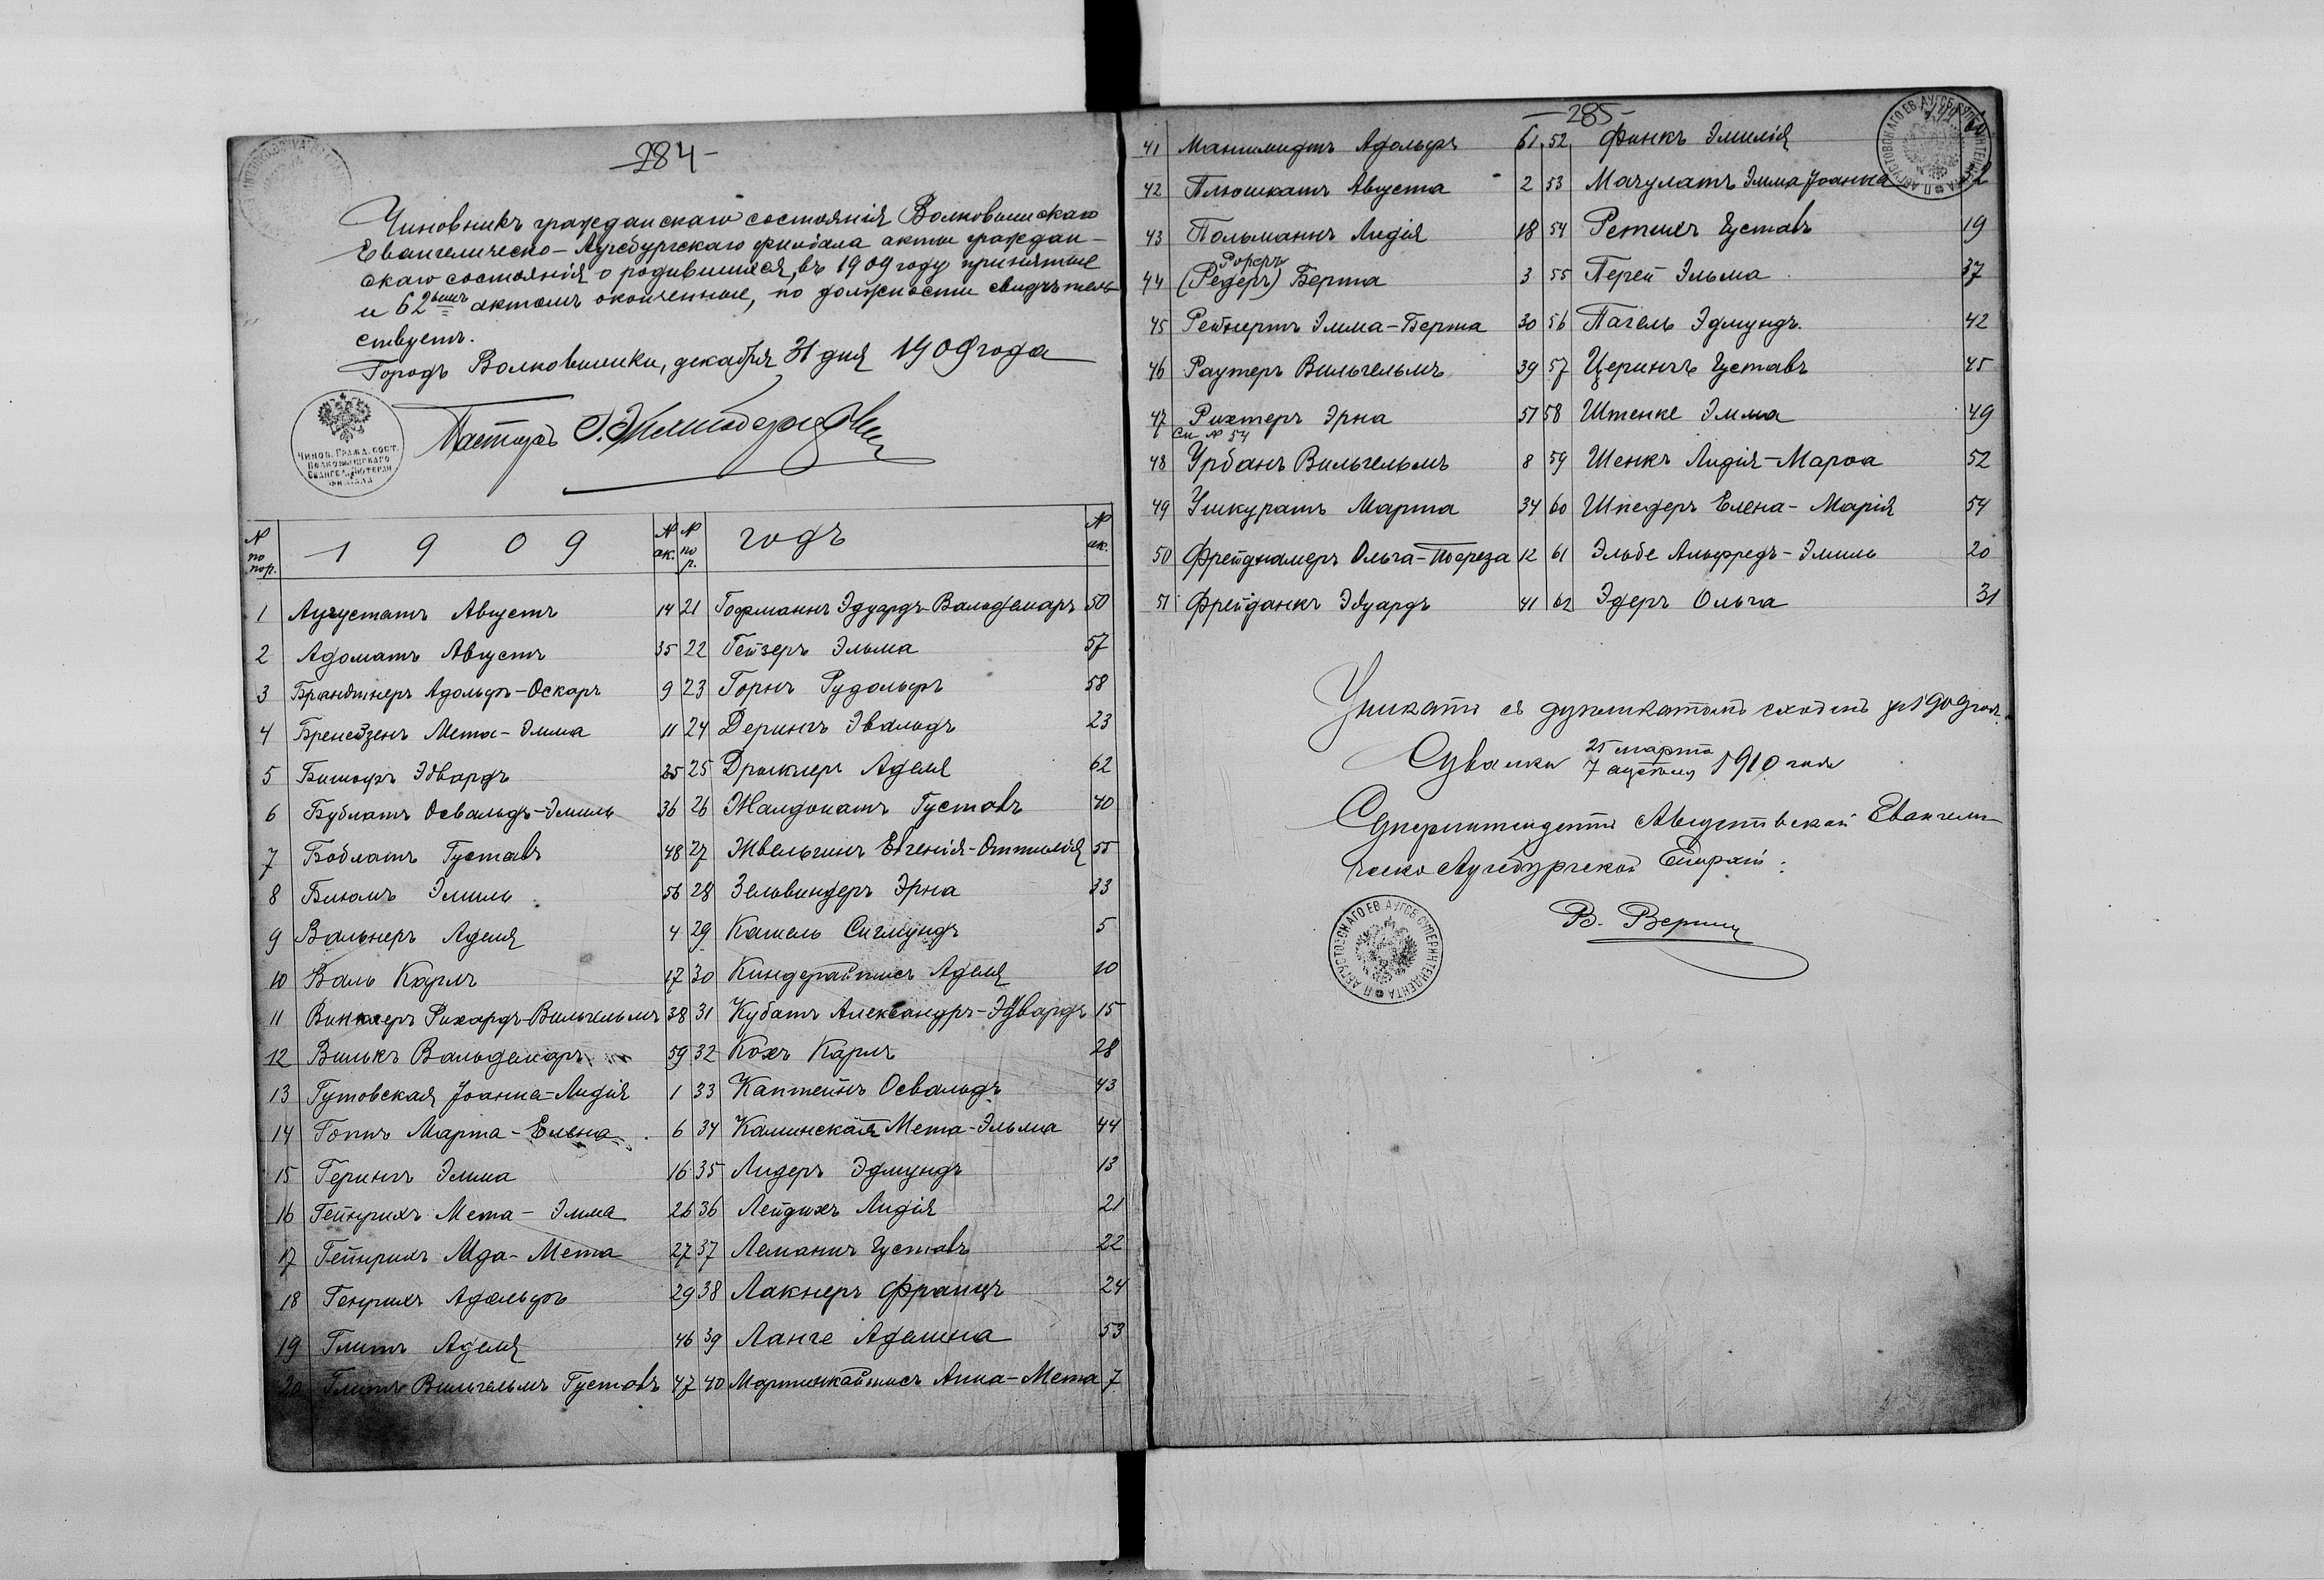 284
Чиновникъ гражданскаго состоянія Волковышскаго
Евангелическо-Аугсбургскаго филіала акты граждан-
скаго состоянія о родившихся, въ 1909 году принятые
и 62 актомъ оконченные, по должности свидѣтель-
ствуетъ.
Городъ Волковышки, декабря 31 дня 1909 года
Пасторъ
Чинов. Гражд. сост.
Волковышскаго
Евангел. Лютеран
филіала
№ по пор. 1909 № ак. № по р. годъ № ак.
1 Аугустатъ Августъ 14 21 Гофманнъ Эдуардъ-Вальдемаръ 50
2 Адоматъ Августъ 35 22 Гейзеръ Эльма 57
3 Брандтнеръ Адольфъ-Оскаръ 9 23 Горнъ Рудольфъ 58
4 Бренейзенъ Мета-Эмма 11 24 Дерингъ Эвальдъ 23
5 Бишофъ Эдвардъ 25 25 Дрыклеръ Аделя 62
6 Бублатъ Освальдъ-Эмиль 36 26 Жалдокатъ Густавъ 40
7 Боблатъ Густавъ 48 27 Жвельгинъ Евгенія-Оттилія 55
8 Блюмъ Эмиль 56 28 Зельвиндеръ Эрна 33
9 Вальнеръ Аделя 4 29 Кашель Сигмундъ 5
10 Валь Карлъ 17 30 Киндерайтисъ Аделя 10
11 Винклеръ Рихардъ-Вильгельмъ 38 31 Кубатъ Александръ-Эдвардъ 15
12 Вилькъ Вальдемаръ 59 32 Кохъ Карлъ 28
13 Гутовская Іоанна-Лидія 1 33 Каптейнъ Освальдъ 43
14 Гоппъ Марта-Елена 6 34 Каминская Мета-Эльма 44
15 Герингъ Эмма 16 35 Лидеръ Эдмундъ 13
16 Гейнрихъ Мета-Эмма 26 36 Лейдихъ Лидія 21
17 Гейнрихъ Ида-Мета 27 37 Леманнъ Густавъ 22
18 Генрихъ Адольфъ 29 38 Лакнеръ Францъ 24
19 Глитъ Аделя 46 39 Ланге Аделина 53
20 Глитъ Вильгельмъ Густавъ 47 40 Мартинкайтисъ Анна-Мета 7
285
41 Маншмидтъ Адольфъ 61 52 Финкъ Эмилія
42 Плюшкатъ Августа 2 53 Мачулатъ Эмма Іоанна 32
43 Польманнъ Лидія 18 54 Ретихъ Густавъ 19
Рореръ
44 (Редеръ) Берта 3 55 Перей Эльма 37
45 Рейнертъ Эмма-Берта 30 56 Пагель Эдмундъ. 42
46 Раутеръ Вильгельмъ 39 57 Церингъ Густавъ 45
47 Рихтеръ Эрна 51 58 Штенке Эмма 49
См № 54
48 Урбанъ Вильгельмъ 8 59 Шенкъ Лидія-Марѳа 52
49 Ушкуратъ Марта 34 60 Шпедеръ Елена-Марія 54
50 Фрейднамеръ Ольга-Тереза 12 61 Эльбе Альфредъ-Эмиль 20
51 Фрейданкъ Эдуардъ 41 62 Эдеръ Ольга 31
Уникатъ съ дупликатомъ сходенъ за 1909 годъ.
Сувалки 25 марта 7 апрѣля 1910 года
Суперинтендентъ Августовской Евангели-
ческо Аугсбургской Епархіи:
П АВГУСТОВСКАГО ЕВ. АУГСБ. СУПЕРИНТЕНДЕНТА